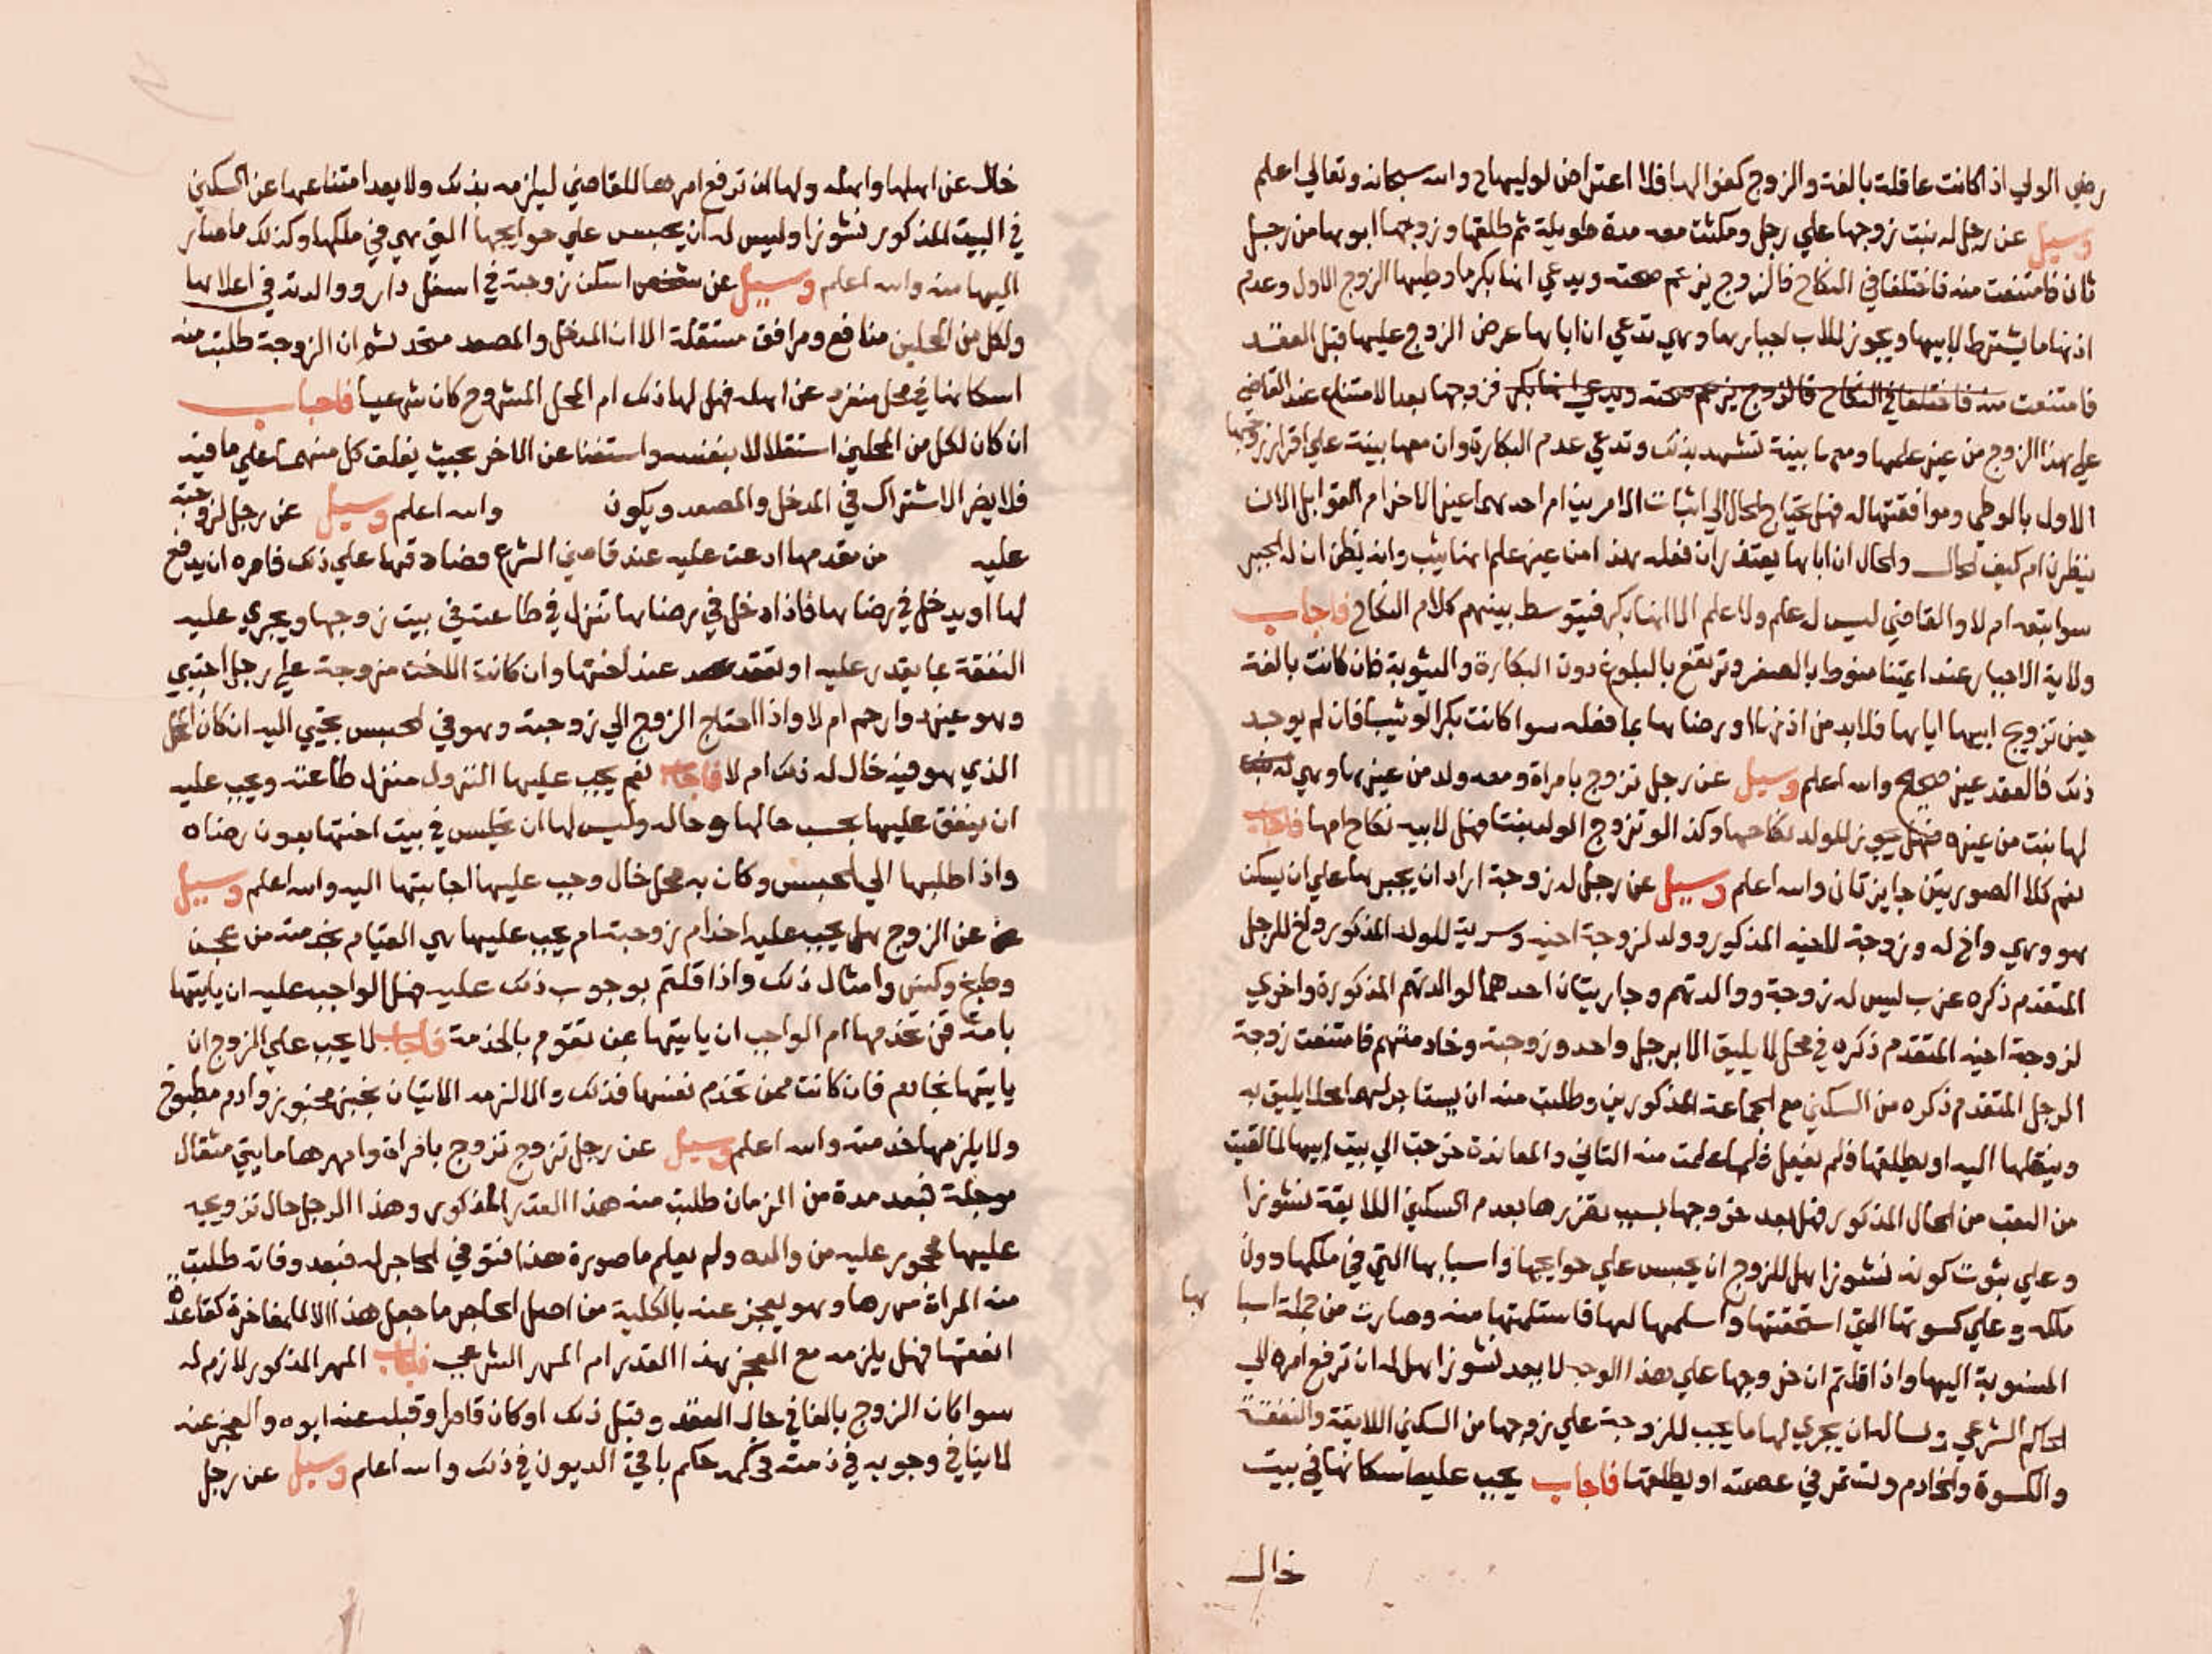 رضي الولي اذا كانت عاقلة بالغة والزوج كفوا لها فلا اعتراض لوليها ح والله سبحانه وتعالي اعلم
وسيل عن رجل له بنت زوجها علي رجل ومكثت معه مدة طويلة ثم طلقها وزوجها ابوها من رجل
ثان فامتنعت منه فاختلفا في النكاح فالزوج يزعم صحته ويدعي انها بكر ما وطيها الزوج الاول وعدم
اذنها ما يشترط لابيها ويجوز للاب اجبارها وهي تدعي ان اباها عرض الزوج عليها قبل العقد
فامتنعت منه فاختلفا في النكاح فالزوج يزعم صحته ويدعي انها بكر فزوجها بعد الامتناع عند القاضي
علي هذا الزوج من غير علمها ومعها بينة تشهد بذلك وتدعي عدم البكارة وان معها بينة علي اقرار زوجها
الاول بالوطي وموافقتها له فهل يحتاج الحال الي اثبات الامرين ام احدهما عين الاخر ام القوابل الان
ينظرن ام كيف الحال والحال ان اباها يعتذر ان فعله هذا من غير علم انها ثيب وانه يظن ان له الجبر
سوا بتعه ام لا والقاضي ليس له علم ولا علم الا انها بكر فيتوسط بينهم كلام النكاح فاجاب
ولاية الاجبار عند ايمتنا منوطا بالصغر وترتفع بالبلوغ دون البكارة والثيوبة فان كانت بالغة
حين تزويج ابيها اياها فلا بد من اذنها ورضاها بما فعله سوا كانت بكرا او ثيبا فان لم يوجد
ذلك فالعقد غير صحيح والله اعلم وسيل عن رجل تزوج بامراة ومعه ولد من غيرها وهي
لها بنت من غيره فهل يجوز للولد نكاحها وكذا لو تزوج الولد بنتا فهل لابيه نكاح امها فاجاب
نعم كلا الصورتين جايزتان والله اعلم وسيل عن رجل له زوجة اراد ان يجبرها علي ان يسكن
هو وهي واخ له وزوجة لاخيه المذكور وولد لزوجة اخيه وسرية للولد المذكور واخ للرجل
المتقدم ذكره عزب ليس له زوجة ووالدتهم وجاريتان احدهما لوالدتهم المذكورة واخري
لزوجة اخيه المتقدم ذكره في محل لا يليق الا برجل واحد وزوجته وخادمتهم فامتنعت زوجة
الرجل المتقدم ذكره من السكني مع الجماعة المذكورين وطلبت منه ان يستاجر لها محلا يليق به
وينقلها اليه او يطلقها فلم يفعل فلما علمت منه التاني والمعاندة خرجت الي بيت ابيها لما لقيت
من التعب من الحال المذكور فهل بعد خروجها بسبب تضررها بعدم السكني اللايقة نشوزا
وعلي ثبوت كونه نشوزا هل للزوج ان يحبس علي حوايجها واسبابها التي في ملكها دون
ملكه وعلي كسوتها التي استحقتها واسلمها لها فاستلمتها منه وصارت من جملة اسبا بها
المنسوبة اليها واذا قلتم ان خروجها علي هذا الوجه لا يعد نشوزا هل لها ان ترفع امره الي
الحاكم الشرعي وتساله ان يجري لها ما يجب للزوجة علي زوجها من السكني اللايقة والنفقة
والكسوة والخادم وتستمر في عصمته او يطلقها فاجاب يجب عليه اسكانها في بيت
خال
خال عن اهلها واهله ولها ان ترفع امرها للقاضي ليلزمه بذلك ولا يعد امتناعها عن السكني
في البيت المذكور نشوزا وليس له ان يحبس علي حوايجها التي هي في ملكها وكذلك ما صار
اليها منه والله اعلم وسيل عن شخص اسكن زوجته في اسفل دار ووالدته في اعلاها
ولكل من المحلين منافع ومرافق مستقلة الا ان المدخل والمصعد متحد ثم ان الزوجة طلبت منه
اسكانها في محل منفرد عن اهله فهل لها ذلك ام المحل المشروح كان شرعيا فاجاب
ان كان لكل من المحلين استقلالا بنفسه واستغنا عن الاخر بحيث يغلق كل منهما علي ما فيه
فلا يضر الاشتراك في المدخل والمصعد ويكون والله اعلم وسيل عن رجل لزوجته
عليه من مقدمها ادعت عليه عند قاضي الشرع فصادقها علي ذلك فامره ان يدفع
لها او يدخل في رضاها فاذا دخل في رضاها تنزل في طاعته في بيت زوجها ويجري عليه
النفقة بما يقدر عليه او تقعد عند اختها وان كانت الاخت مزوجة علي رجل اجنبي
وهو غير ذو ارحم ام لا واذا احتاج الزوج الي زوجته وهو في الحبس تجي اليه ان كان المحل
الذي هو فيه خال له ذلك ام لا فاجاب نعم يجب عليها النزول منزل طاعته ويجب عليه
ان ينفق عليها بحسب حالها وحاله وليس لها ان تجلس في بيت اختها بدون رضاه
واذا طلبها الي الحبس وكان به محل خال وجب عليها اجابتها اليه والله اعلم وسيل
عن الزوج هل يجب عليه اخدام زوجته ام يجب عليها هي القيام بخدمته من عجن
وطبخ وكنس وامثال ذلك واذا قلتم بوجوب ذلك عليه فهل الواجب عليه ان ياتيها
بامة قن تخدمها ام الواجب ان ياتيها بمن تقوم بالخدمة فاجاب لا يجب علي الزوج ان
ياتيها بخادم فان كانت ممن تخدم نفسها فذلك والا لزمه الاتيان بخبز مخبوز وادم مطبوخ
ولا يلزمها خدمته والله اعلم وسيل عن رجل تزوج تزوج بامراة وامهرها مايتي مثقال
موجلة فبعد مدة من الزمان طلبت منه هذا القدر المذكور وهذا الرجل حال تزويجه
عليها محجور عليه من والده ولم يعلم ما صورة هذا فتوفي الحاجر له فبعد وفاته طلبت
منه المراة مهرها وهو يعجز عنه بالكلية من اصل الحاجر ما جعل هذا الا للمفاخرة كقاعدة
انفقتها فهل يلزمه مع العجز هذا القدر ام المهر الشرعي فاجاب المهر المذكور لازم له
سوا كان الزوج بالغا في حال العقد وقبل ذلك او كان قاصرا وقبله عنه ابوه والعجز عنه
لا ينافي وجوبه في ذمته فحكمه حكم باقي الديون في ذلك والله اعلم وسيل عن رجل